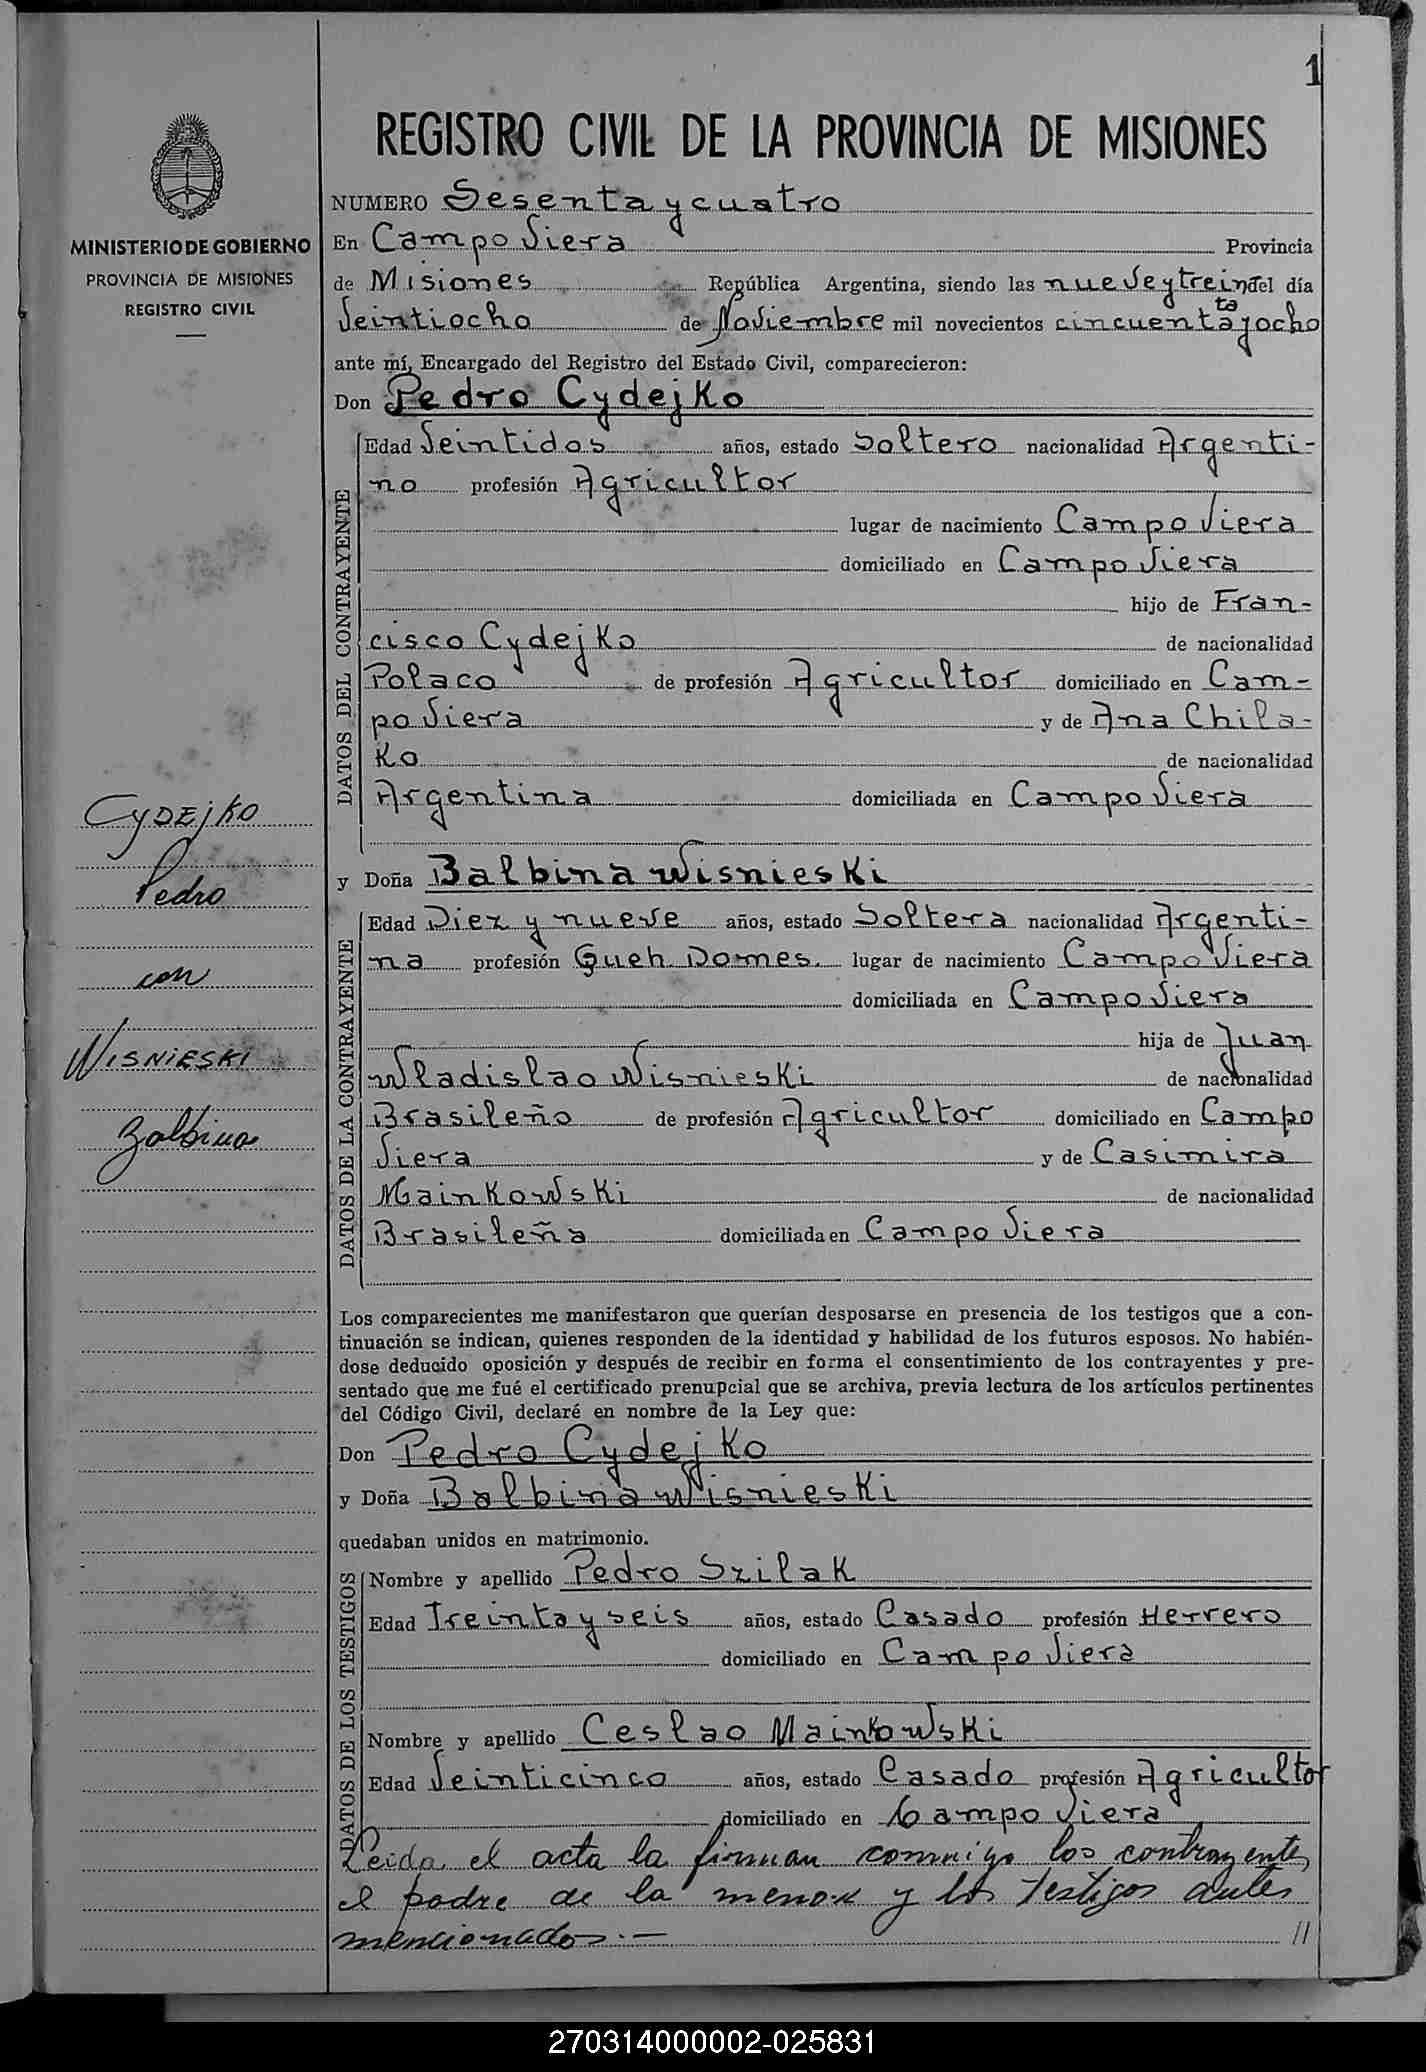 1
REGISTRO CIVIL DE LA PROVINCIA DE MISIONES
MINISTERIO DE GOBIERNO
PROVINCIA DE MISIONES
REGISTRO CIVIL
NUMERO Sesenta y cuatro
En Campo Viera Provincia
de Misiones República Argentina, siendo las nueve y treinta del día
Veintiocho de Noviembre mil novecientos cincuenta y ocho
ante mí, Encargado del Registro del Estado Civil, comparecieron:
Don Pedro Cydejko
DATOS DEL CONTRAYENTE
Edad Veintidos años, estado Soltero nacionalidad Argenti-
no profesión Agricultor
lugar de nacimiento Campo Viera
domiciliado en Campo Viera
hijo de Fran-
cisco Cydejko de nacionalidad
Polaco de profesión Agricultor domiciliado en Cam-
po Viera y de Ana Chila-
ko de nacionalidad
Argentina domiciliada en Campo Viera
CYDEJKO
Pedro
con
WISNIESKI
Balbina
y Doña Balbina Wisnieski
DATOS DE LA CONTRAYENTE
Edad Diez y nueve años, estado Soltera nacionalidad Argenti-
na profesión Queh. Domes. lugar de nacimiento Campo Viera
domiciliada en Campo Viera
hija de Juan
Wladislao Wisnieski de nacionalidad
Brasileño de profesión Agricultor domiciliado en Campo
Viera y de Casimira
Mainkowski de nacionalidad
Brasileña domiciliada en Campo Viera
Los comparecientes me manifestaron que querían desposarse en presencia de los testigos que a con-
tinuación se indican, quienes responden de la identidad y habilidad de los futuros esposos. No habién-
dose deducido oposición y después de recibir en forma el consentimiento de los contrayentes y pre-
sentado que me fué el certificado prenupcial que se archiva, previa lectura de los artículos pertinentes
del Código Civil, declaré en nombre de la Ley que:
Don Pedro Cydejko
y Doña Balbina Wisnieski
quedaban unidos en matrimonio.
DATOS DE LOS TESTIGOS
Nombre y apellido Pedro Szilak
Edad Treinta y seis años, estado Casado profesión Herrero
domiciliado en Campo Viera
Nombre y apellido Ceslao Mainkowski
Edad Veinticinco años, estado Casado profesión Agricultor
domiciliado en Campo Viera
Leida el acta la firman conmigo los contrayentes,
el padre de la menor y los testigos antes
mencionados.— //
270314000002-025831